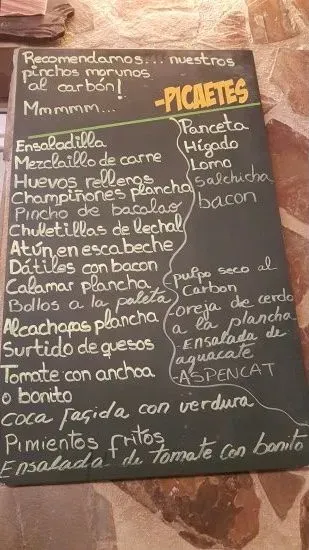 Recomendamos... nuestros
pinchos morunos
al carbón!
Mmmmm...
-PICAETES
Ensaladilla
Mezclaillo de carne
Huevos rellenos
Champiñones plancha
Pincho de bacalao
Chuletillas de lechal
Atún en escabeche
Dátiles con bacon
Calamar plancha
Bollos a la paleta
Alcachofas plancha
Surtido de quesos
Tomate con anchoa
o bonito
coca fagida con verdura
Pimientos fritos
Ensalada de tomate con bonito
Panceta
Hígado
Lomo
Salchicha
bacon
-pulpo seco al
Carbon
-oreja de cerdo
a la plancha
-Ensalada de
aguacate
-ASPENCAT